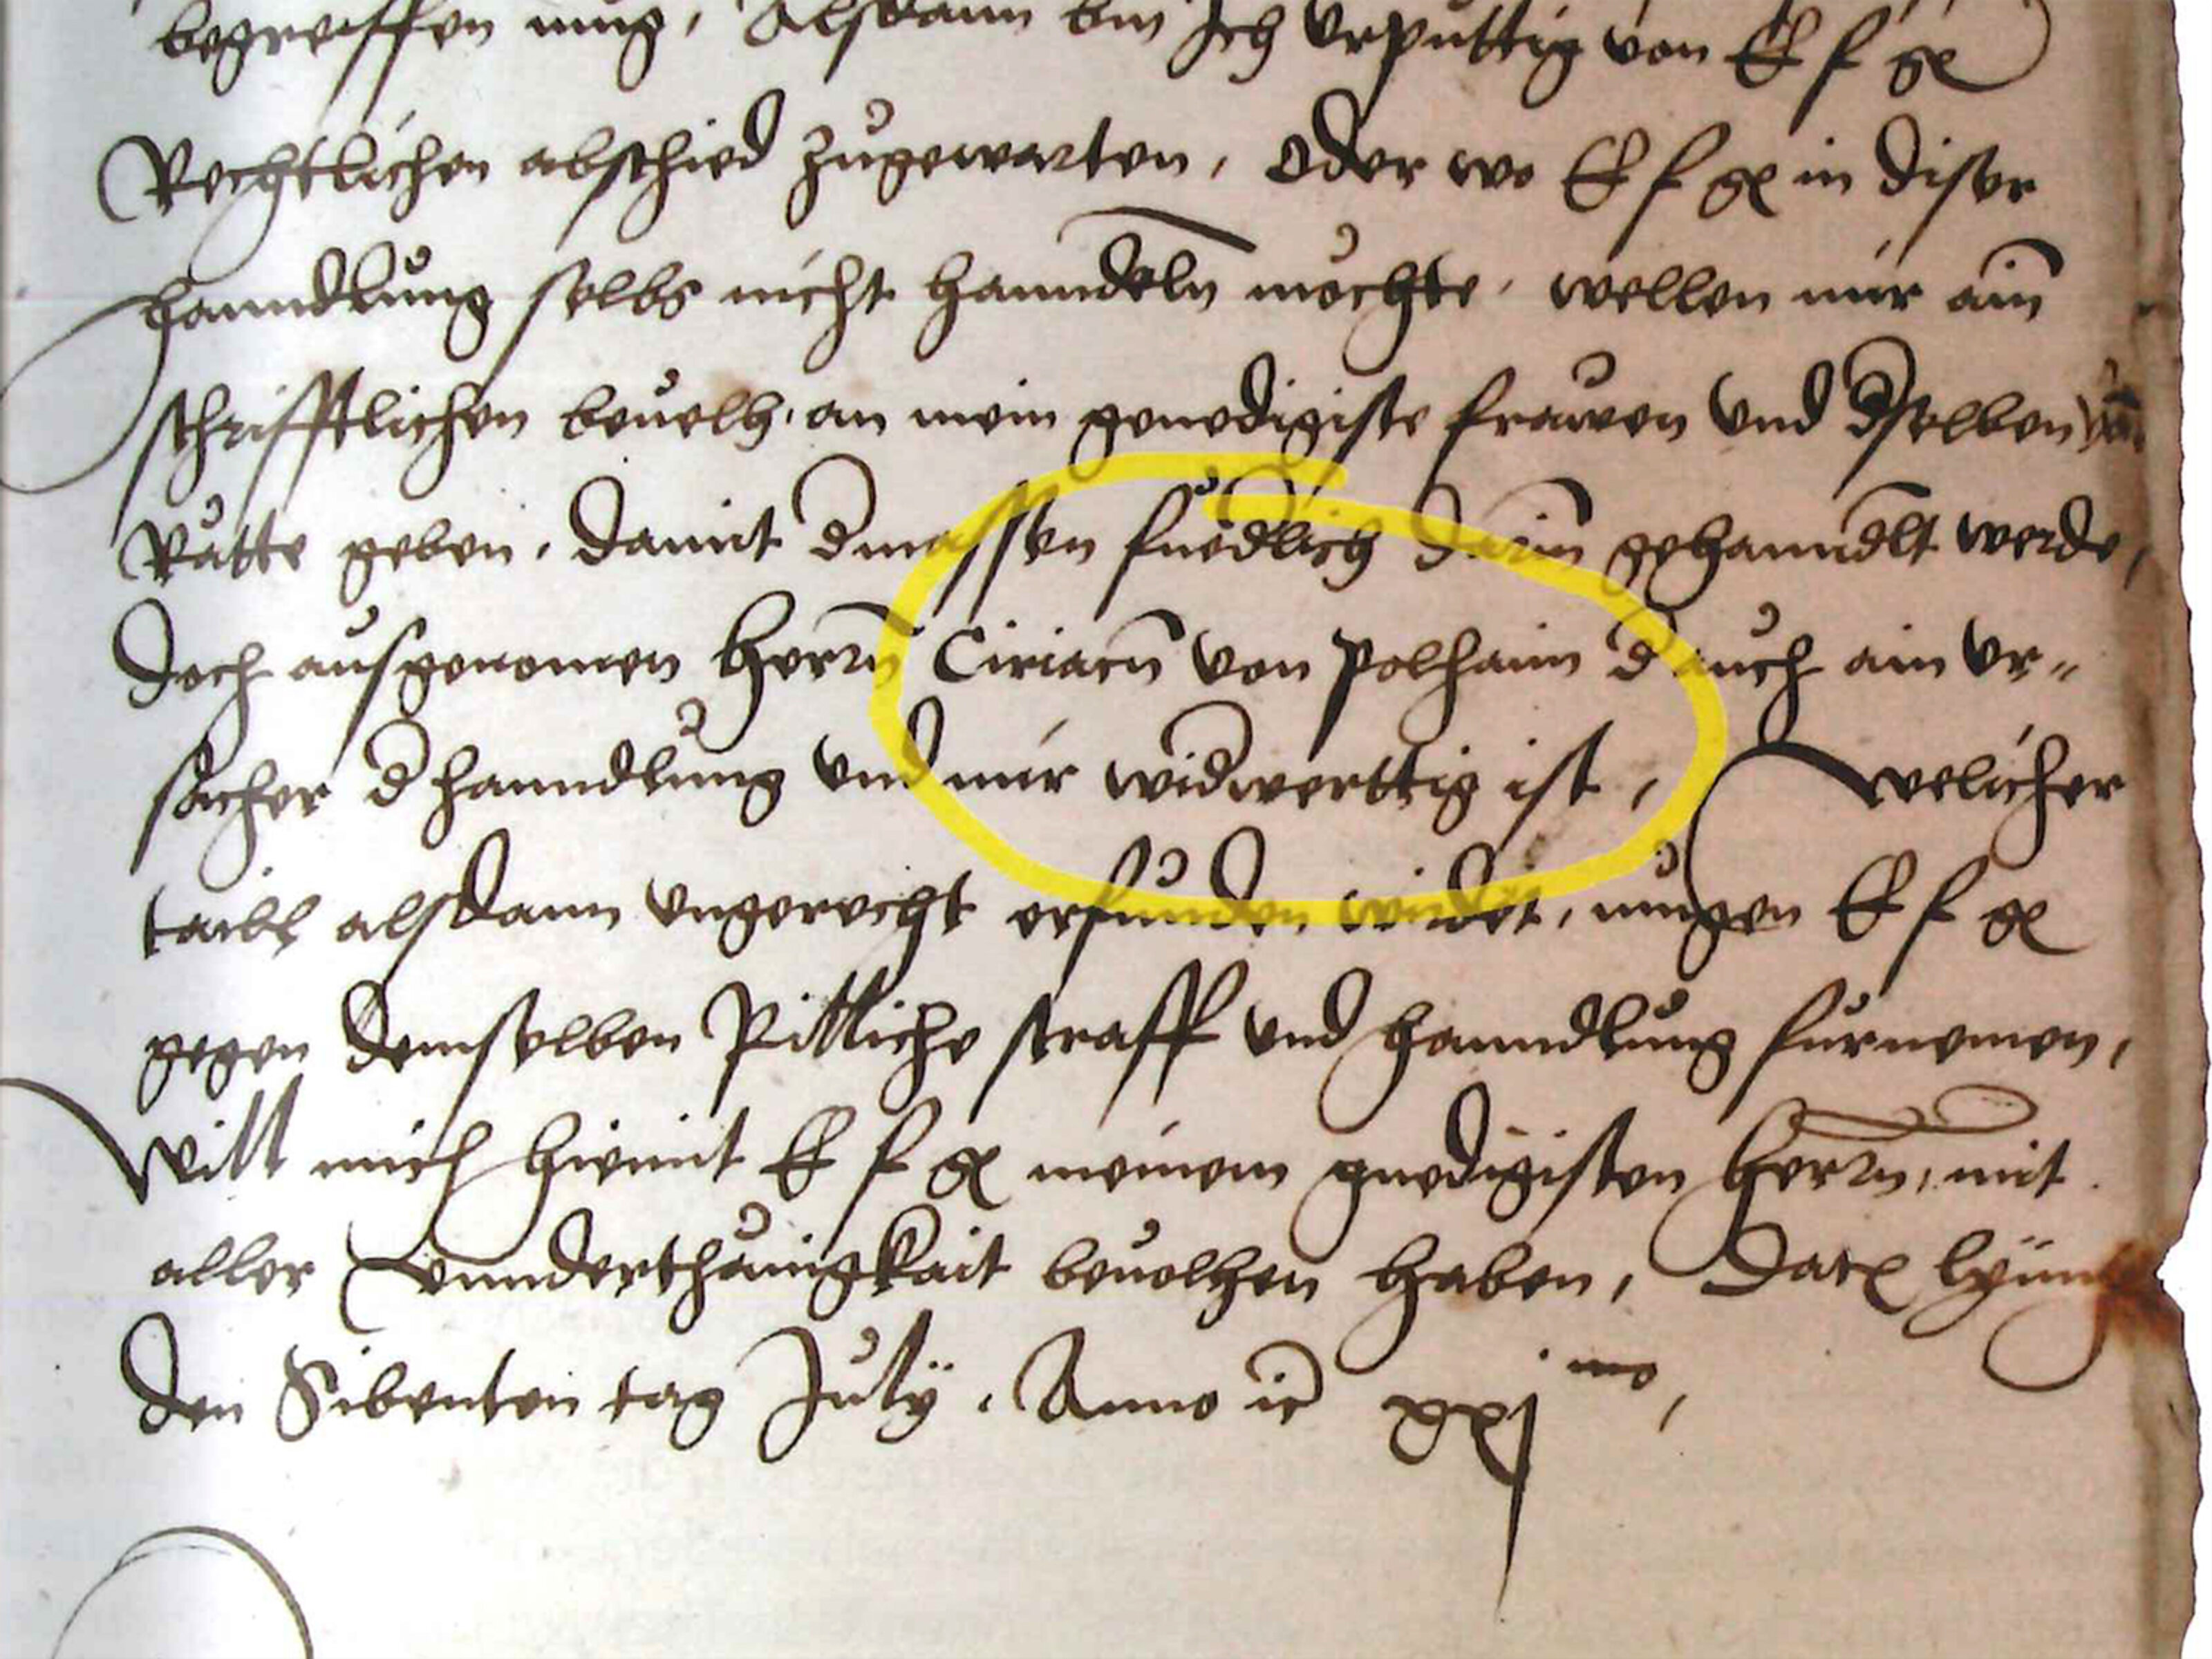 begreiffen mug, Alsdann bin Ich Urputtig von E f g
Rechtlichen abschied zugewarten, Oder wo E f g in diser
hanndlung selbs nicht hanndeln möchte, wellen mir ain
schrifftlichen beuelh, an mein genedigiste frawen Und dselben
Rätte geben, damit dmassen fuedlich darin gehanndlt werde,
doch ausgenomen Herrn Ciriacn von Polhaim d auch ain Ur-
sacher d hanndlung Und mir widwerttig ist, welicher
taibl alsdann Ungerecht erfunden wirdet, mugen E f g
gegen demselben Pilliche straff Und hanndlung furnemen,
Will mich hiemit E f g meinem gnedigisten Herrn, mit
aller Unnderthänigkait beuolhen haben, Dat Lynn
den Sibenten tag July. Anno ic xxj mo,